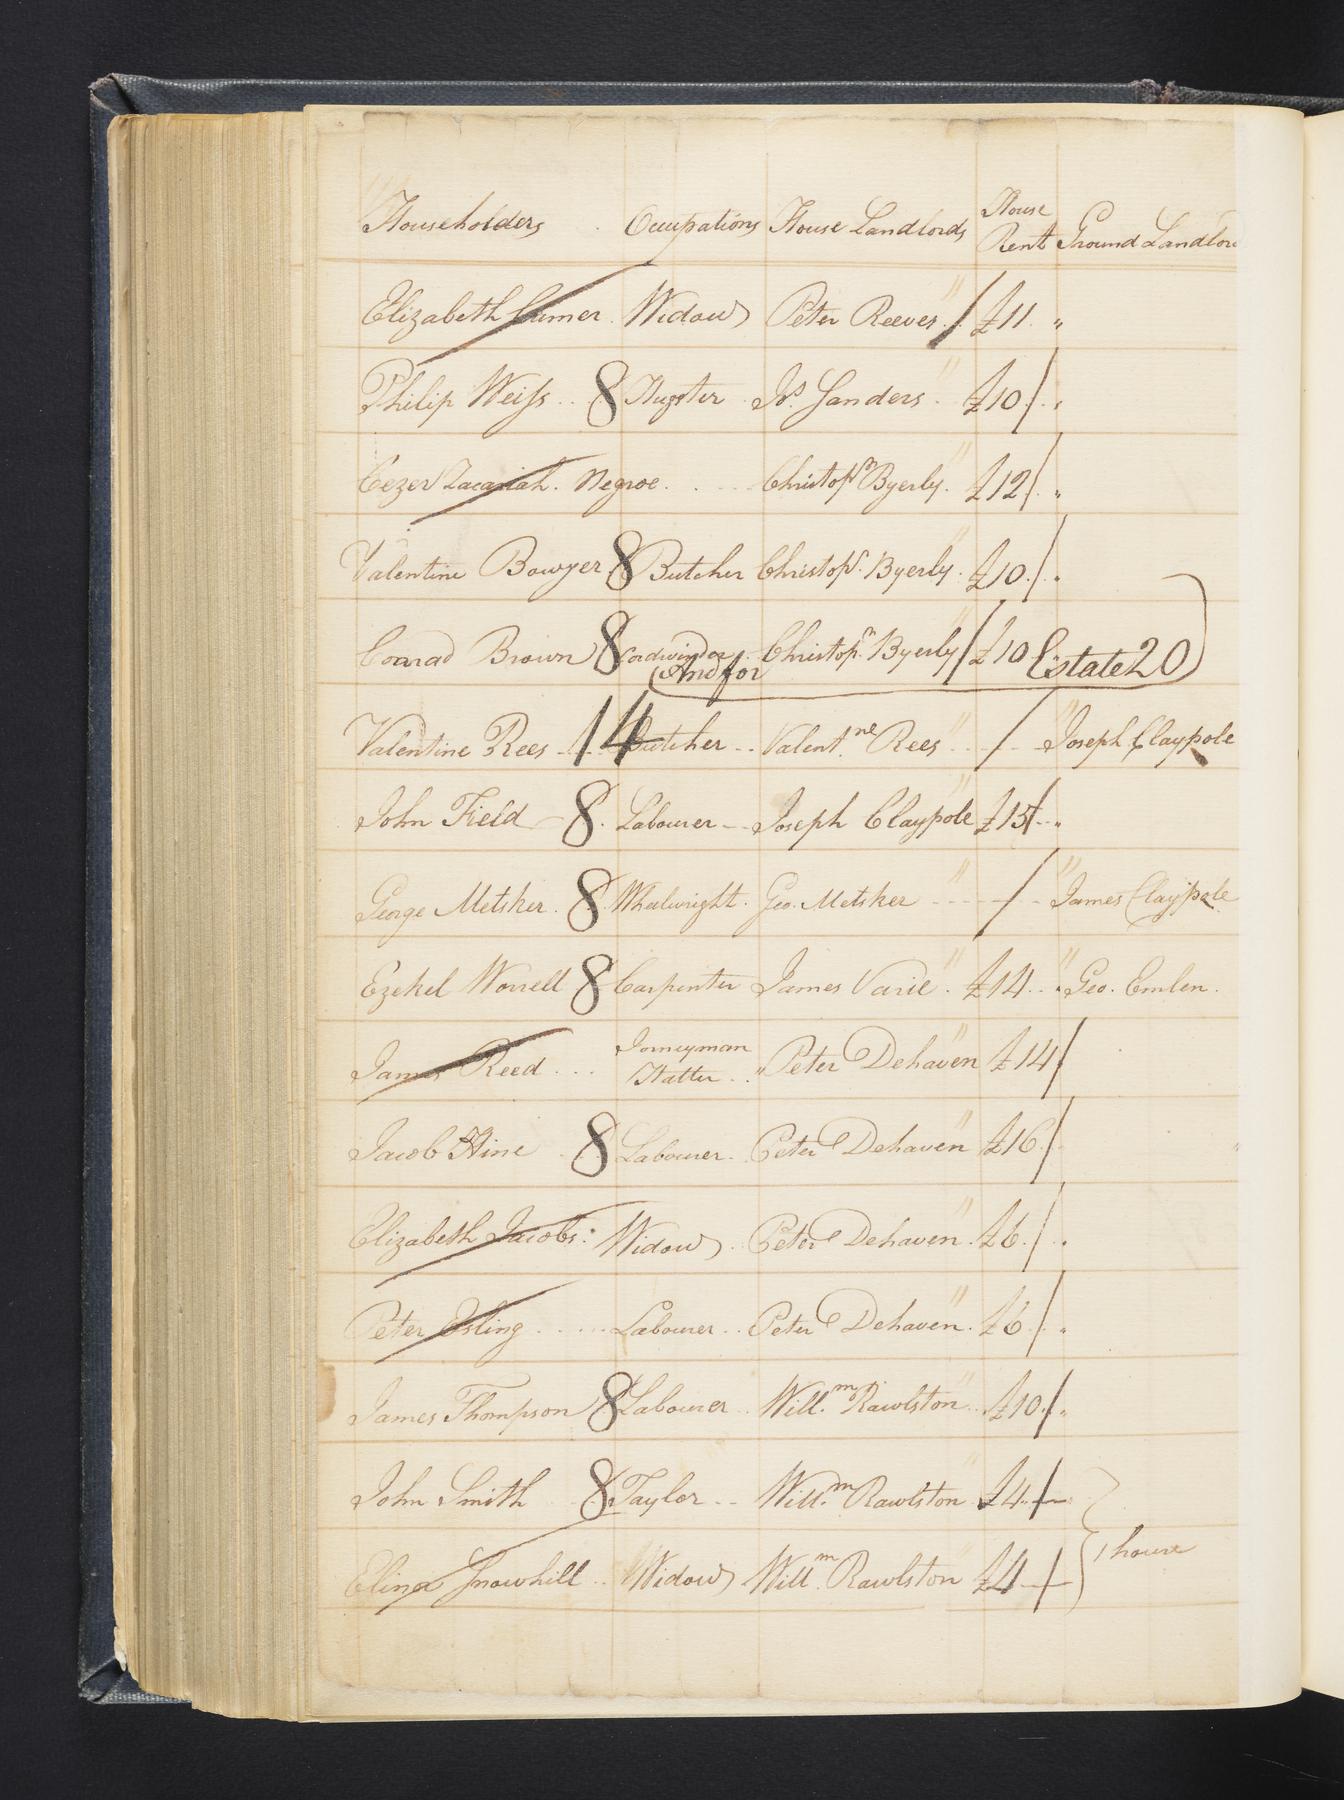 Householders . Occupations House Landlords House Rent Ground Landlor
Elizabeth . Widow Peter Reeves / £11 "
Philip Weiss .. 8 Hugster Js. Sanders . £10 / "
Cezer Zacariah . Negroe . . Christopr. Byerly . £12 / "
Valentine Bowyer 8 Butcher Christopr. Byerly . £10 / "
Conrad Brown 8 Cordwinder .. Christopr. Byerly / £10 Estate 20
And for
Valentine Rees 14 Butcher .. Valent.ne Rees / Joseph Claypole
John Field 8 Labourer -- Joseph Claypole £15 / "
George Metsker . 8 Wheelwright . Geo. Metsker / James Claypole
Ezekel Worrell 8 Carpenter James Varie . £14 .. " Geo. Emlen .
James Reed ... Jorneyman Hatter .. " Peter Dehaven £14 /
Jacob Hine 8 Labourer . Peter Dehaven £16 /
Elizabeth Jacobs : Widow . Peter Dehaven . £6 / "
Peter Esling ..... Labourer .. Peter Dehaven . £6 / "
James Thompson 8 Labourer .. Will.m Rawlston .. £10 / "
John Smith 8 Taylor -- Will.m Rawlston £4 /
Elinor Snowhill .. Widow Will.m Rawlston £4 / } 1 house